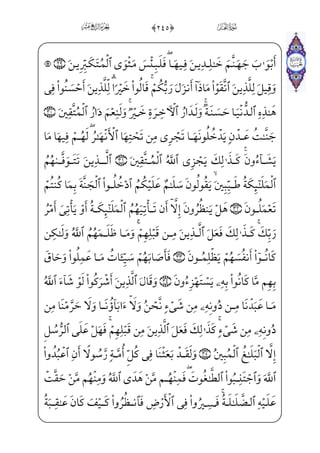 ﴿٢٤٥﴾
أَبْوَٰبَ جَهَنَّمَ خَـٰلِدِينَ فِيهَا ۖ فَلَبِئْسَ مَثْوَى ٱلْمُتَكَبِّرِينَ ۝٢٩ ۞
وَقِيلَ لِلَّذِينَ ٱتَّقَوْا۟ مَاذَآ أَنزَلَ رَبُّكُمْ ۚ قَالُوا۟ خَيْرًا ۗ لِّلَّذِينَ أَحْسَنُوا۟ فِى
هَـٰذِهِ ٱلدُّنْيَا حَسَنَةٌ ۚ وَلَدَارُ ٱلْـَٔاخِرَةِ خَيْرٌ ۚ وَلَنِعْمَ دَارُ ٱلْمُتَّقِينَ ۝٣٠
جَنَّـٰتُ عَدْنٍ يَدْخُلُونَهَا تَجْرِى مِن تَحْتِهَا ٱلْأَنْهَـٰرُ ۖ لَهُمْ فِيهَا مَا
يَشَآءُونَ ۚ كَذَٰلِكَ يَجْزِى ٱللَّهُ ٱلْمُتَّقِينَ ۝٣١ ٱلَّذِينَ تَتَوَفَّىٰهُمُ
ٱلْمَلَـٰٓئِكَةُ طَيِّبِينَ ۙ يَقُولُونَ سَلَـٰمٌ عَلَيْكُمُ ٱدْخُلُوا۟ ٱلْجَنَّةَ بِمَا كُنتُمْ
تَعْمَلُونَ ۝٣٢ هَلْ يَنظُرُونَ إِلَّآ أَن تَأْتِيَهُمُ ٱلْمَلَـٰٓئِكَةُ أَوْ يَأْتِىَ أَمْرُ
رَبِّكَ ۚ كَذَٰلِكَ فَعَلَ ٱلَّذِينَ مِن قَبْلِهِمْ ۚ وَمَا ظَلَمَهُمُ ٱللَّهُ وَلَـٰكِن
كَانُوٓا۟ أَنفُسَهُمْ يَظْلِمُونَ ۝٣٣ فَأَصَابَهُمْ سَيِّـَٔاتُ مَا عَمِلُوا۟ وَحَاقَ
بِهِم مَّا كَانُوا۟ بِهِۦ يَسْتَهْزِءُونَ ۝٣٤ وَقَالَ ٱلَّذِينَ أَشْرَكُوا۟ لَوْ شَآءَ ٱللَّهُ
مَا عَبَدْنَا مِن دُونِهِۦ مِن شَىْءٍ نَّحْنُ وَلَآ ءَابَآؤُنَا وَلَا حَرَّمْنَا مِن
دُونِهِۦ مِن شَىْءٍ ۚ كَذَٰلِكَ فَعَلَ ٱلَّذِينَ مِن قَبْلِهِمْ ۚ فَهَلْ عَلَى ٱلرُّسُلِ
إِلَّا ٱلْبَلَـٰغُ ٱلْمُبِينُ ۝٣٥ وَلَقَدْ بَعَثْنَا فِى كُلِّ أُمَّةٍ رَّسُولًا أَنِ ٱعْبُدُوا۟
ٱللَّهَ وَٱجْتَنِبُوا۟ ٱلطَّـٰغُوتَ ۖ فَمِنْهُم مَّنْ هَدَى ٱللَّهُ وَمِنْهُم مَّنْ حَقَّتْ
عَلَيْهِ ٱلضَّلَـٰلَةُ ۚ فَسِيرُوا۟ فِى ٱلْأَرْضِ فَٱنظُرُوا۟ كَيْفَ كَانَ عَـٰقِبَةُ